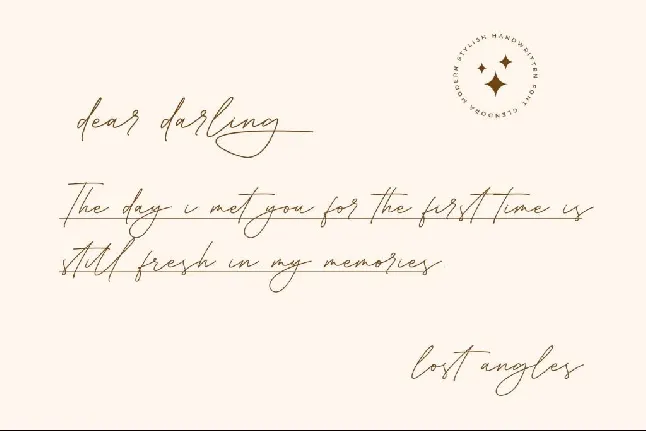 MODERN STYLISH HANDWRITTEN FONT GLENDORA
dear darling
The day i met you for the first time is
still fresh in my memories
lost angles